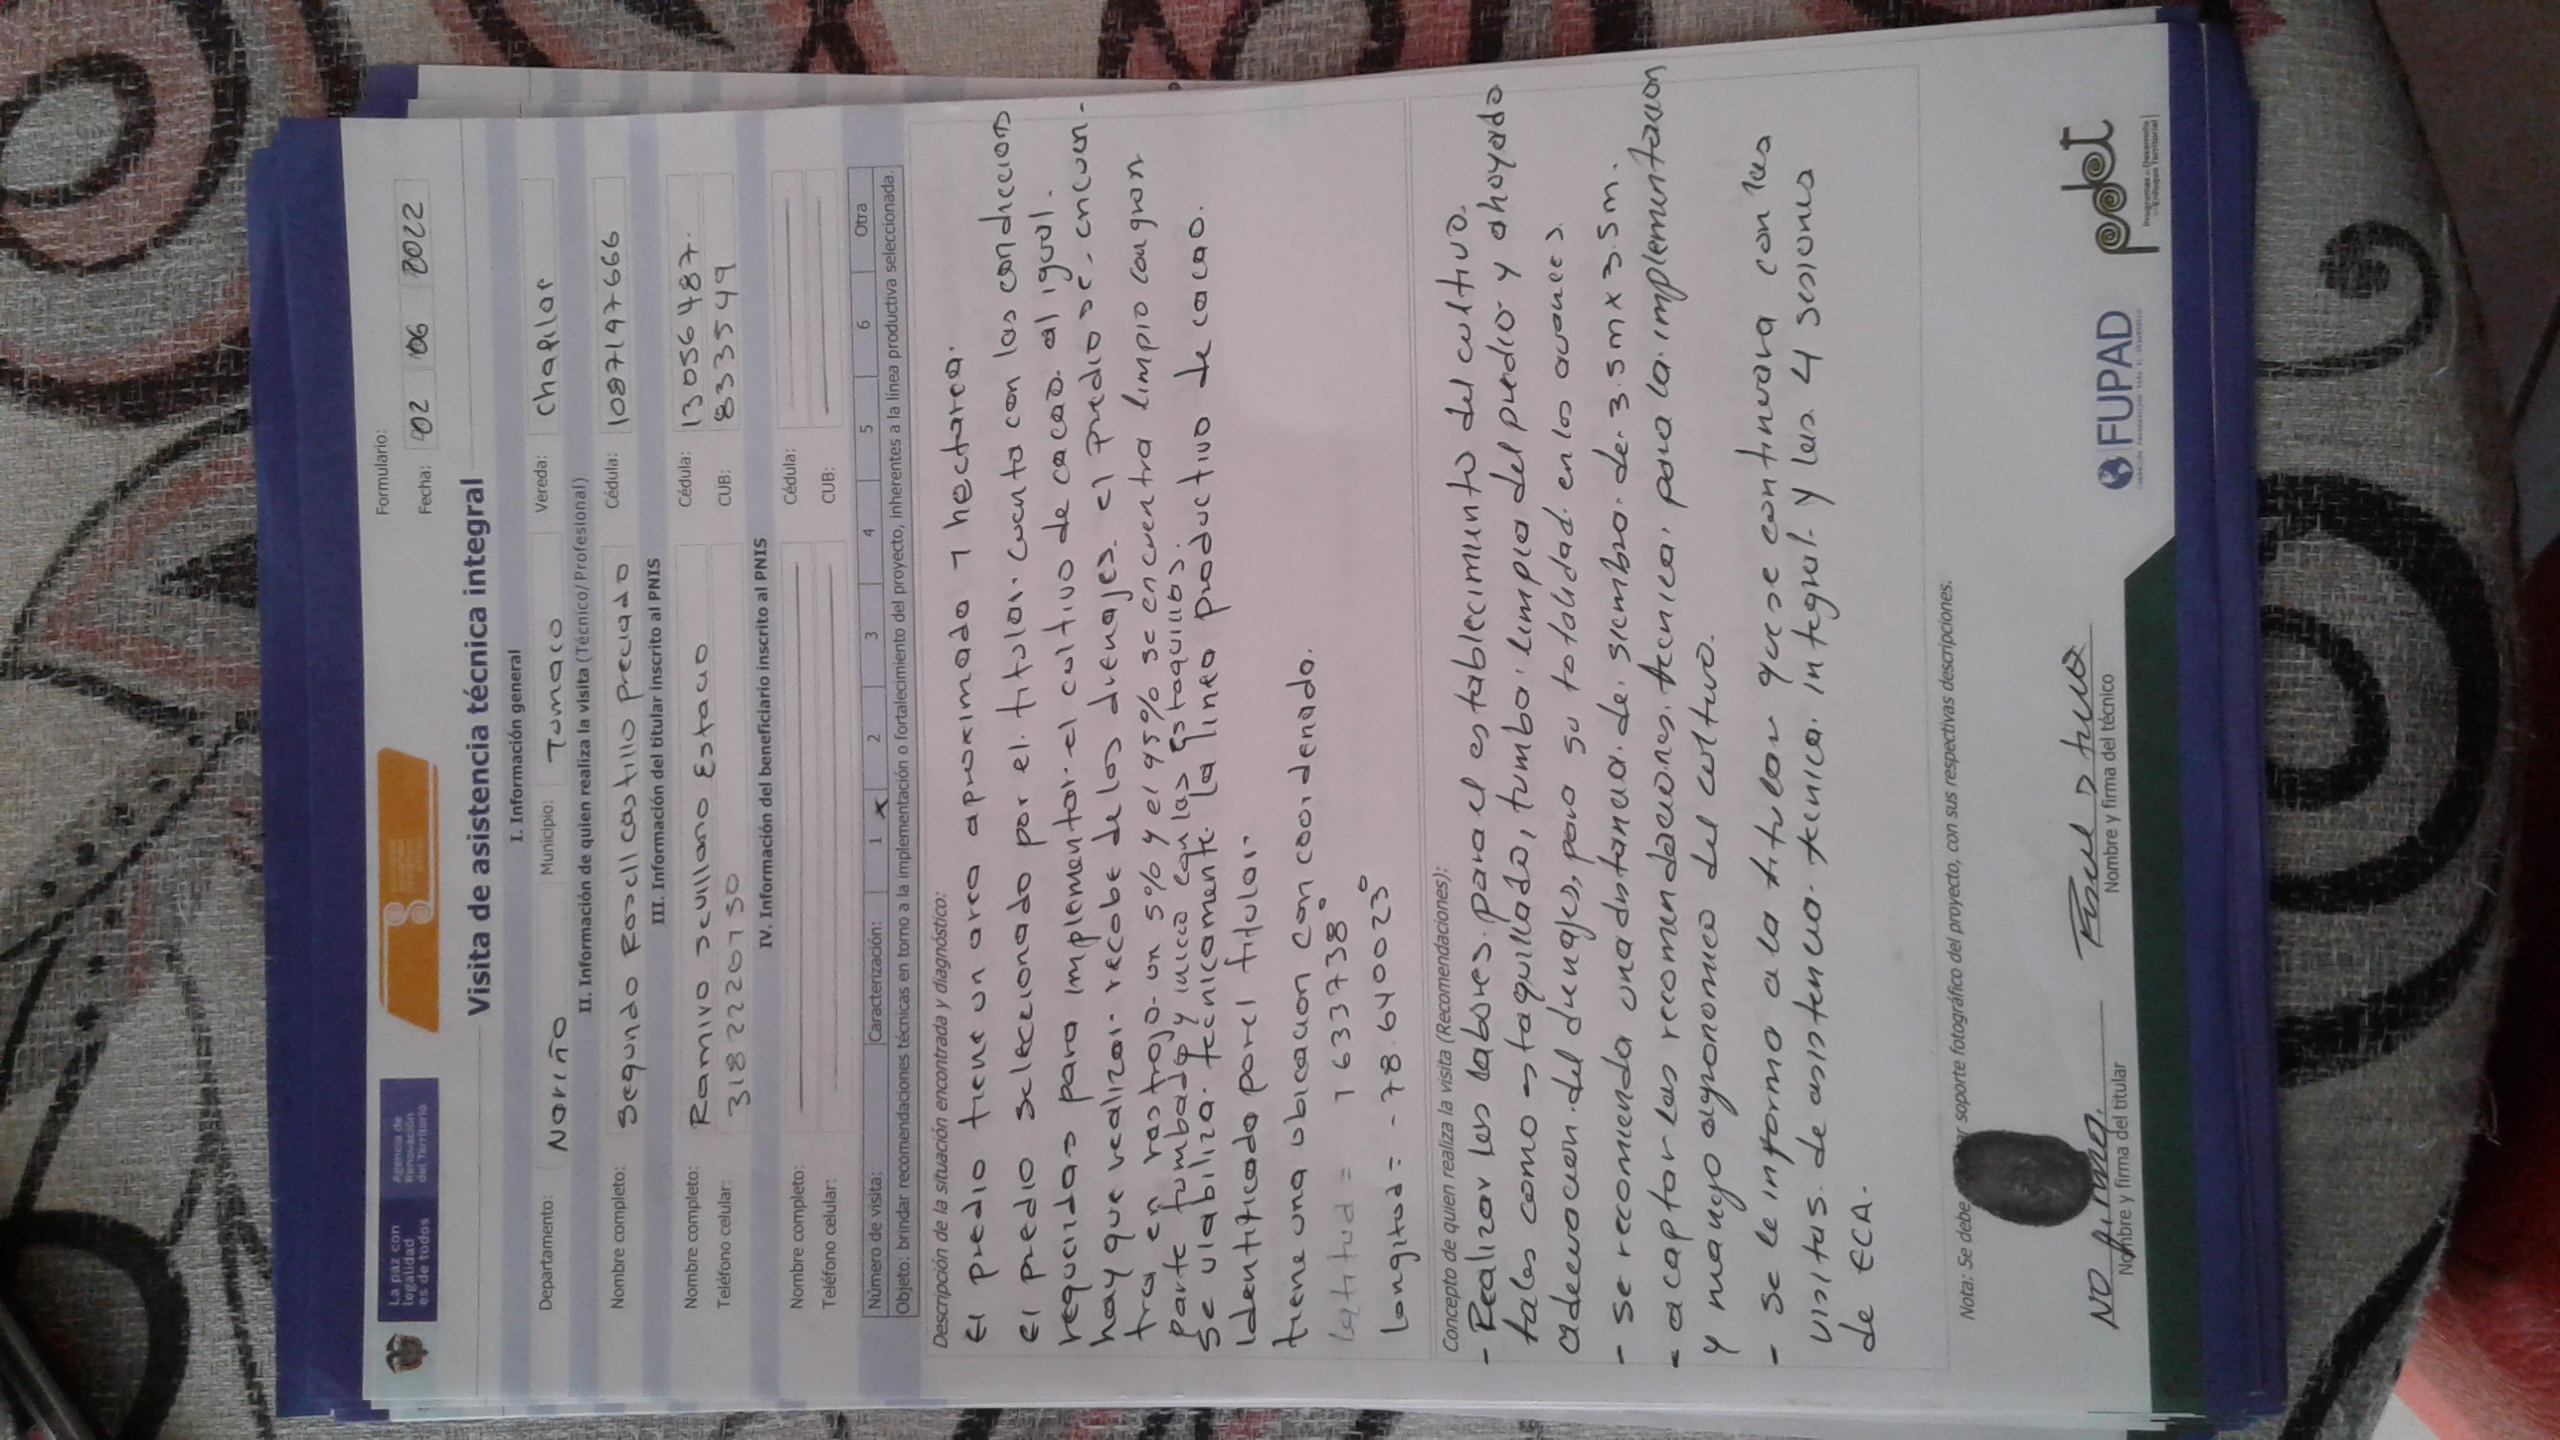 La paz con
legalidad
es de todos
Agencia de
Renovación
del Territorio
Formulario:
Fecha: 02 06 2022
Visita de asistencia técnica integral
I. Información general
Departamento: Nariño Municipio: Tumaco Vereda: Chapilar
II. Información de quien realiza la visita (Técnico/Profesional)
Nombre completo: Segundo Rosell castillo preciado Cédula: 1087197666
III. Información del titular inscrito al PNIS
Nombre completo: Ramiro Sevillano Estacio Cédula: 13056487.
Teléfono celular: 3182220730 CUB: 833549
IV. Información del beneficiario inscrito al PNIS
Nombre completo: Cédula:
Teléfono celular: CUB:
Número de visita: Caracterización: 1 x 2 3 4 5 6 Otra
Objeto: brindar recomendaciones técnicas en torno a la implementación o fortalecimiento del proyecto, inherentes a la línea productiva seleccionada.
Descripción de la situación encontrada y diagnóstico:
El predio tiene un area aproximada 1 hectarea.
el predio seleccionado por el titular. cuenta con las condicions
requeridas para implementar el cultivo de cacao. al igual.
hay que realizar recobe de los drenajes. el predio se, encuen-
tra en rastrojo. un 5% y el 95% se encuentra limpio con gran
parte tumbado y inicio con las estaquillas.
se viabiliza tecnicamente la linea productivo de cacao.
Identificado por el titular.
tiene una ubicacion con coordenado.
latitud = 1633738°
longitud = -78.640023°
Concepto de quien realiza la visita (Recomendaciones):
- Realizar las labores para el establecimiento del cultivo.
tales como estaquillado, tumba. limpia del predio y ahoyado
adecuacion del drenajes, para su totalidad en los avances.
- se recomienda una distancia de siembra de 3.5m x 3.5m.
- acaptar las recomendaciones. tecnica. para la implementacion
y manejo agronomico del cultivo.
- se le informo a la titular que se continuara con las
visitas de asistencia tecnica integral y las 4 sesiones
de ECA.
Nota: Se debe soporte fotográfico del proyecto, con sus respectivas descripciones.
NO firma.
Nombre y firma del titular
Nombre y firma del técnico
FUPAD
pdet
Programas de Desarrollo
con Enfoque Territorial